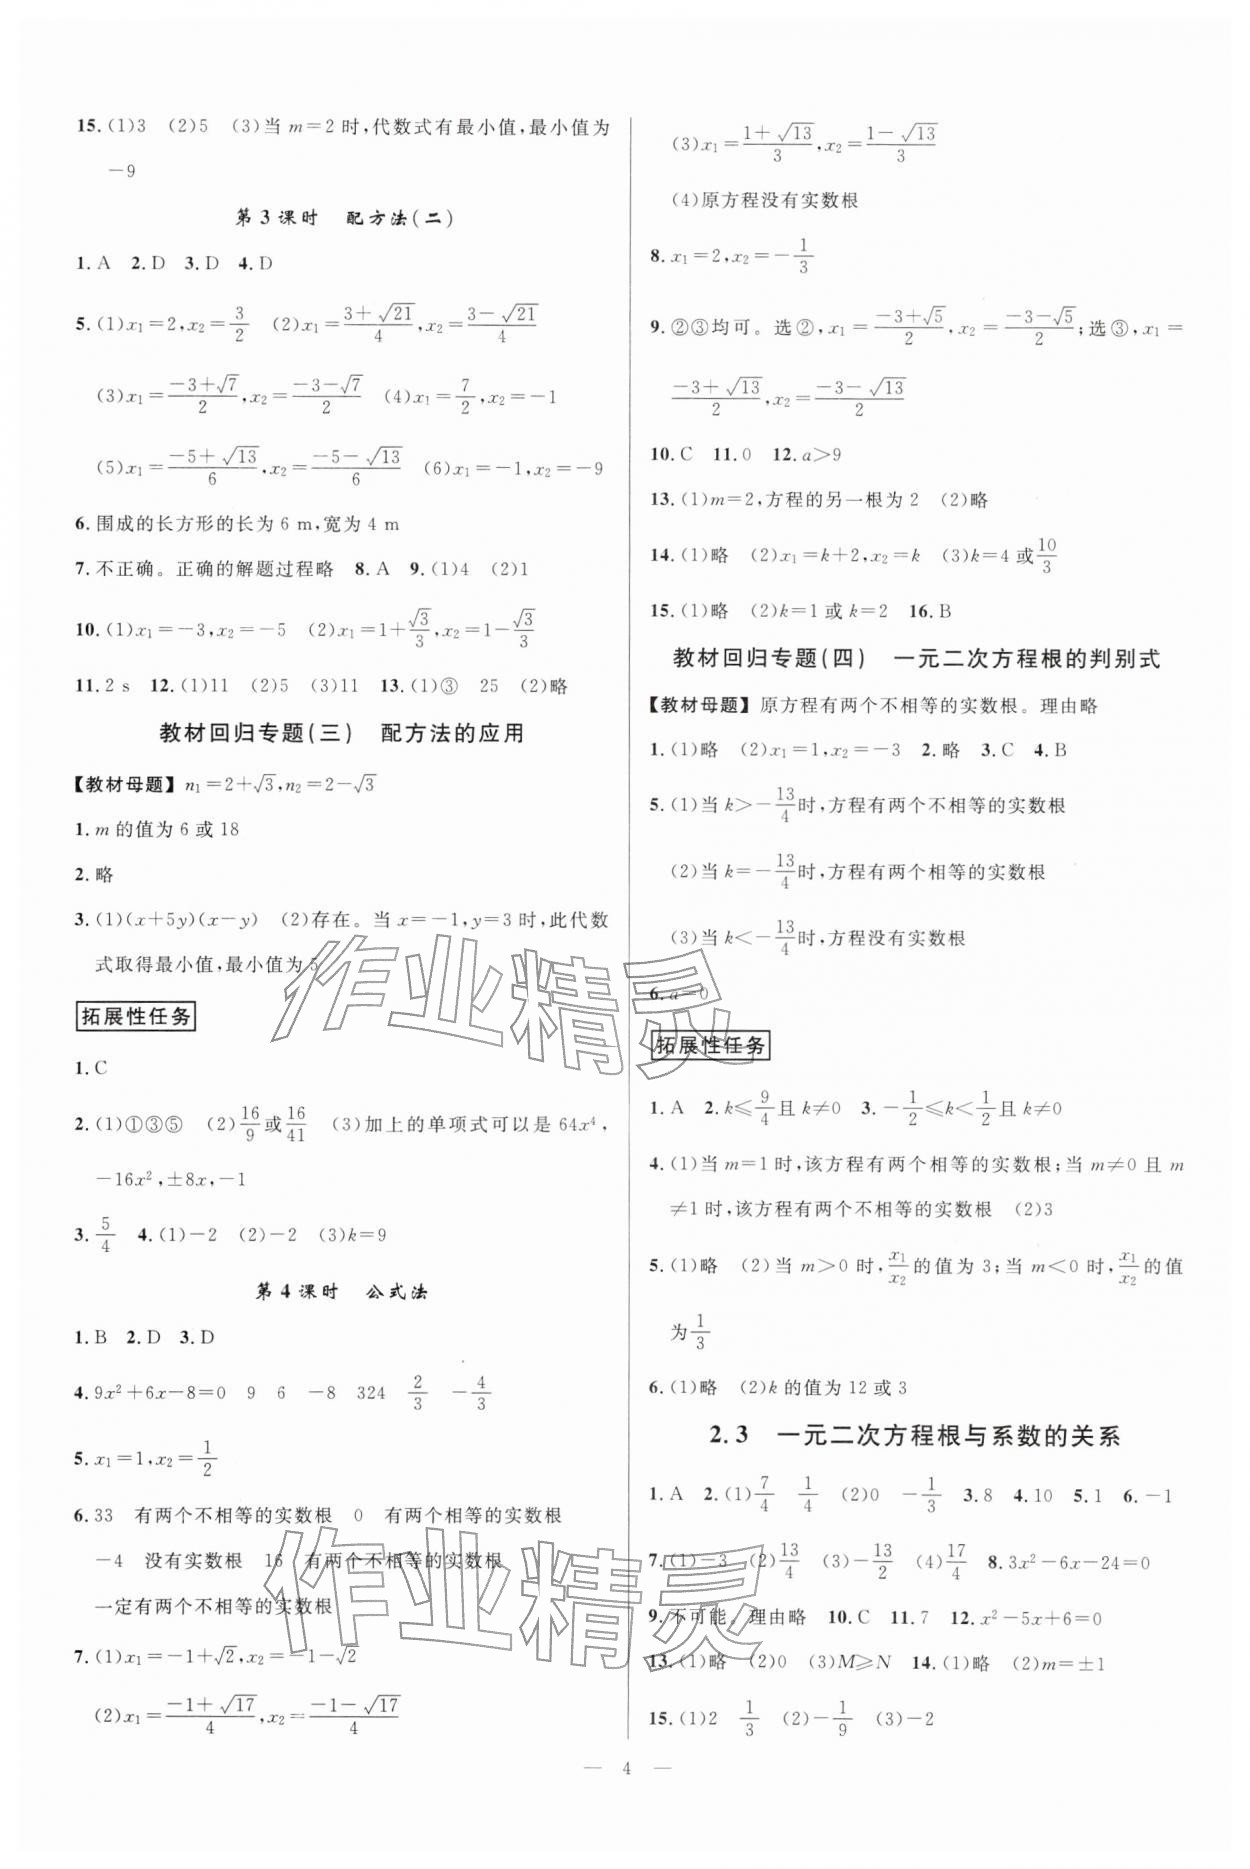 15.(1)3 (2)5 (3)当 m=2 时,代数式有最小值,最小值为
-9
第3课时 配方法(二)
1.A 2.D 3.D 4.D
5.(1)x₁=2,x₂=3/2 (2)x₁=(3+√21)/4,x₂=(3-√21)/4
(3)x₁=(-3+√7)/2,x₂=(-3-√7)/2 (4)x₁=7/2,x₂=-1
(5)x₁=(-5+√13)/6,x₂=(-5-√13)/6 (6)x₁=-1,x₂=-9
6.围成的长方形的长为 6 m,宽为 4 m
7.不正确。正确的解题过程略 8.A 9.(1)4 (2)1
10.(1)x₁=-3,x₂=-5 (2)x₁=1+√3/3,x₂=1-√3/3
11.2 s 12.(1)11 (2)5 (3)11 13.(1)③ 25 (2)略
教材回归专题(三) 配方法的应用
【教材母题】n₁=2+√3,n₂=2-√3
1.m 的值为 6 或 18
2.略
3.(1)(x+5y)(x-y) (2)存在。当 x=-1,y=3 时,此代数
式取得最小值,最小值为 5
拓展性任务
1.C
2.(1)①③⑤ (2)16/9或16/41 (3)加上的单项式可以是 64x⁴,
-16x²,±8x,-1
3.5/4 4.(1)-2 (2)-2 (3)k=9
第4课时 公式法
1.B 2.D 3.D
4.9x²+6x-8=0 9 6 -8 324 2/3 -4/3
5.x₁=1,x₂=1/2
6.33 有两个不相等的实数根 0 有两个相等的实数根
-4 没有实数根 16 有两个不相等的实数根
一定有两个不相等的实数根
7.(1)x₁=-1+√2,x₂=-1-√2
(2)x₁=(-1+√17)/4,x₂=(-1-√17)/4
(3)x₁=(1+√13)/3,x₂=(1-√13)/3
(4)原方程没有实数根
8.x₁=2,x₂=-1/3
9.②③均可。选②,x₁=(-3+√5)/2,x₂=(-3-√5)/2;选③,x₁=
(-3+√13)/2,x₂=(-3-√13)/2
10.C 11.0 12.a>9
13.(1)m=2,方程的另一根为 2 (2)略
14.(1)略 (2)x₁=k+2,x₂=k (3)k=4 或10/3
15.(1)略 (2)k=1 或 k=2 16.B
教材回归专题(四) 一元二次方程根的判别式
【教材母题】原方程有两个不相等的实数根。理由略
1.(1)略 (2)x₁=1,x₂=-3 2.略 3.C 4.B
5.(1)当 k>-13/4时,方程有两个不相等的实数根
(2)当 k=-13/4时,方程有两个相等的实数根
(3)当 k<-13/4时,方程没有实数根
6.a=0
拓展性任务
1.A 2.k≤9/4且 k≠0 3.-1/2≤k<1/2且 k≠0
4.(1)当 m=1 时,该方程有两个相等的实数根;当 m≠0 且 m
≠1 时,该方程有两个不相等的实数根 (2)3
5.(1)略 (2)当 m>0 时,x₁/x₂的值为 3;当 m<0 时,x₁/x₂的值
为1/3
6.(1)略 (2)k 的值为 12 或 3
2.3 一元二次方程根与系数的关系
1.A 2.(1)7/4 1/4 (2)0 -1/3 3.8 4.10 5.1 6.-1
7.(1)-3 (2)13/4 (3)-13/2 (4)17/4 8.3x²-6x-24=0
9.不可能。理由略 10.C 11.7 12.x²-5x+6=0
13.(1)略 (2)0 (3)M≥N 14.(1)略 (2)m=±1
15.(1)2 1/3 (2)-1/9 (3)-2
— 4 —
作业精灵
作业精灵